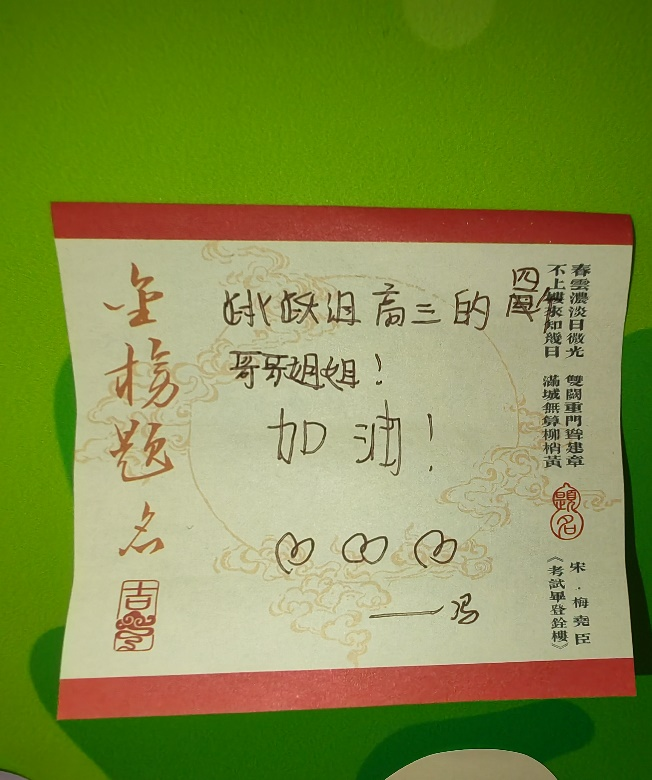 金榜题名
吉
高三的
四
哥哥姐姐！
加油！
——冯
春雲濃淡日微光 雙闕重門聳建章
不上樓來知幾日 滿城無算柳梢黃
題名
宋·梅堯臣
《考試畢登銓樓》